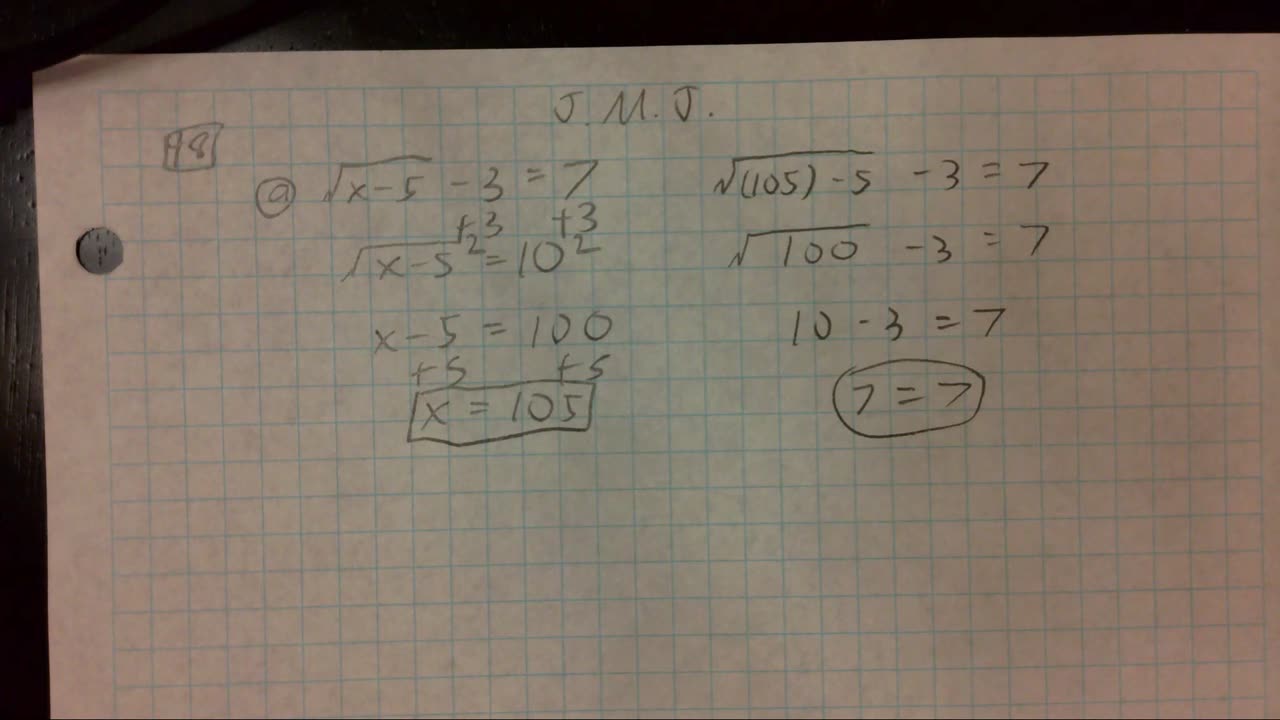 J.M.J.
98
ⓐ √x-5 - 3 = 7
+3 +3
√x-5² = 10²
x - 5 = 100
+5 +5
x = 105
√(105) - 5 - 3 = 7
√100 - 3 = 7
10 - 3 = 7
7 = 7